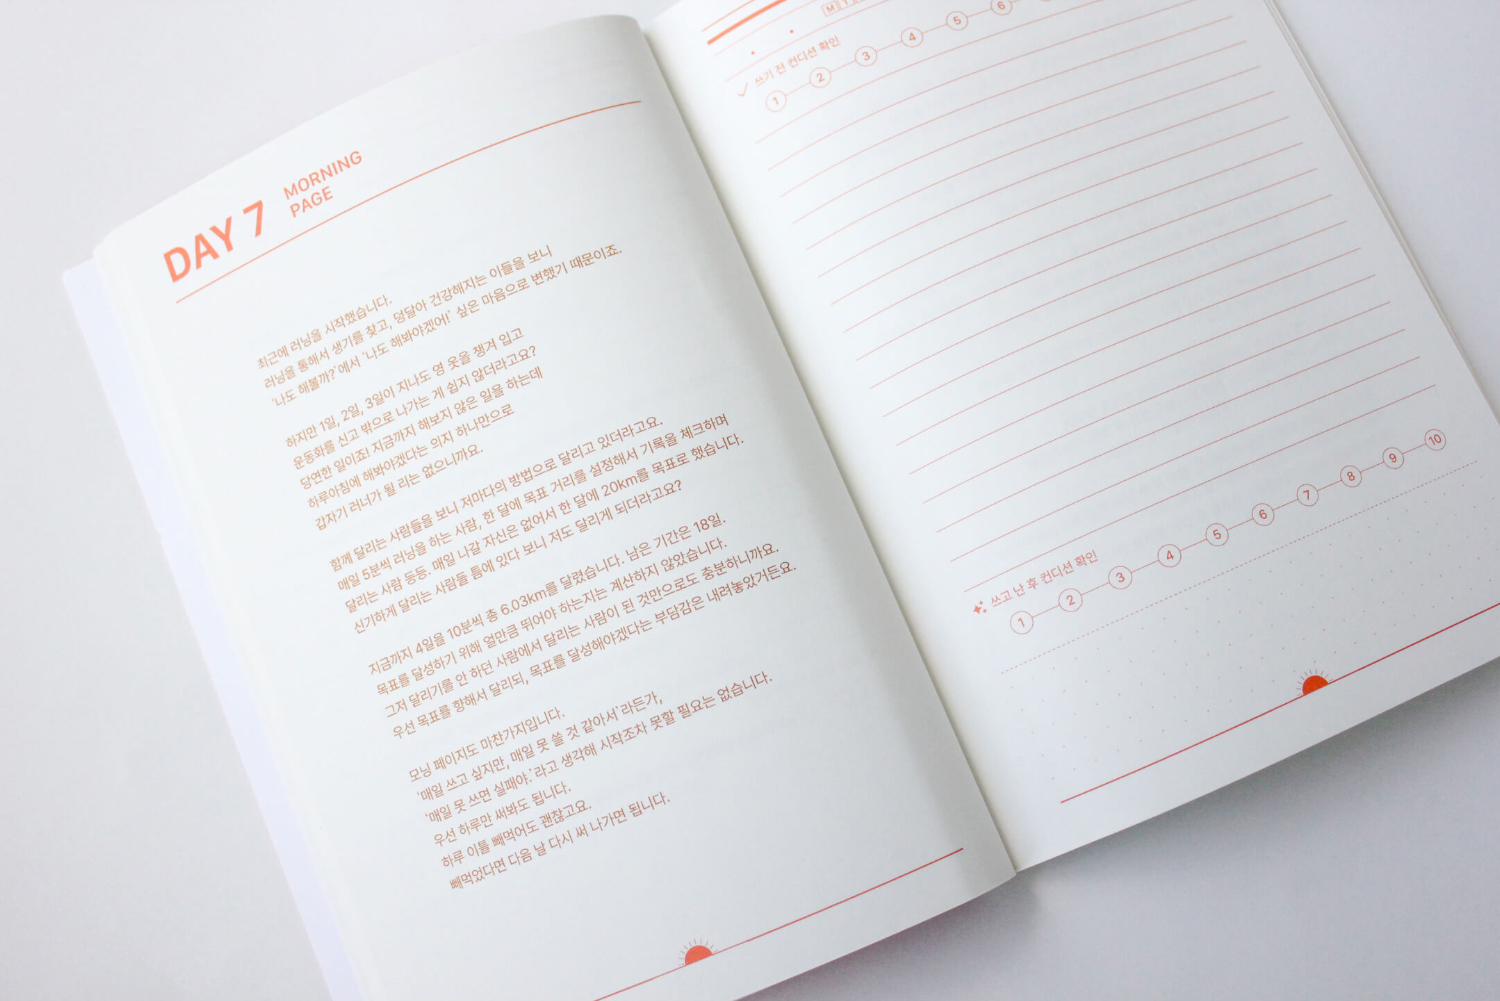 DAY 7
MORNING
PAGE
최근에 러닝을 시작했습니다.
러닝을 통해서 생기를 찾고, 덩달아 건강해지는 이들을 보니
‘나도 해볼까?’에서 ‘나도 해봐야겠어!’ 싶은 마음으로 변했기 때문이죠.
하지만 1일, 2일, 3일이 지나도 영 옷을 챙겨 입고
운동화를 신고 밖으로 나가는 게 쉽지 않더라고요?
당연한 일이죠! 지금까지 해보지 않은 일을 하는데
하루아침에 해봐야겠다는 의지 하나만으로
갑자기 러너가 될 리는 없으니까요.
함께 달리는 사람들을 보니 저마다의 방법으로 달리고 있더라고요.
매일 5분씩 러닝을 하는 사람, 한 달에 목표 거리를 설정해서 기록을 체크하며
달리는 사람 등등. 매일 나갈 자신은 없어서 한 달에 20km를 목표로 했습니다.
신기하게 달리는 사람들 틈에 있다 보니 저도 달리게 되더라고요?
지금까지 4일을 10분씩 총 6.03km를 달렸습니다. 남은 기간은 18일.
목표를 달성하기 위해 얼만큼 뛰어야 하는지는 계산하지 않았습니다.
그저 달리기를 안 하던 사람에서 달리는 사람이 된 것만으로도 충분하니까요.
우선 목표를 향해서 달리되, 목표를 달성해야겠다는 부담감은 내려놓았거든요.
모닝 페이지도 마찬가지입니다.
‘매일 쓰고 싶지만, 매일 못 쓸 것 같아서’라든가,
‘매일 못 쓰면 실패야.’라고 생각해 시작조차 못할 필요는 없습니다.
우선 하루만 써봐도 됩니다.
하루 이틀 빼먹어도 괜찮고요.
빼먹었다면 다음 날 다시 써 나가면 됩니다.
쓰기 전 컨디션 확인
1 2 3 4 5 6
쓰고 난 후 컨디션 확인
1 2 3 4 5 6 7 8 9 10